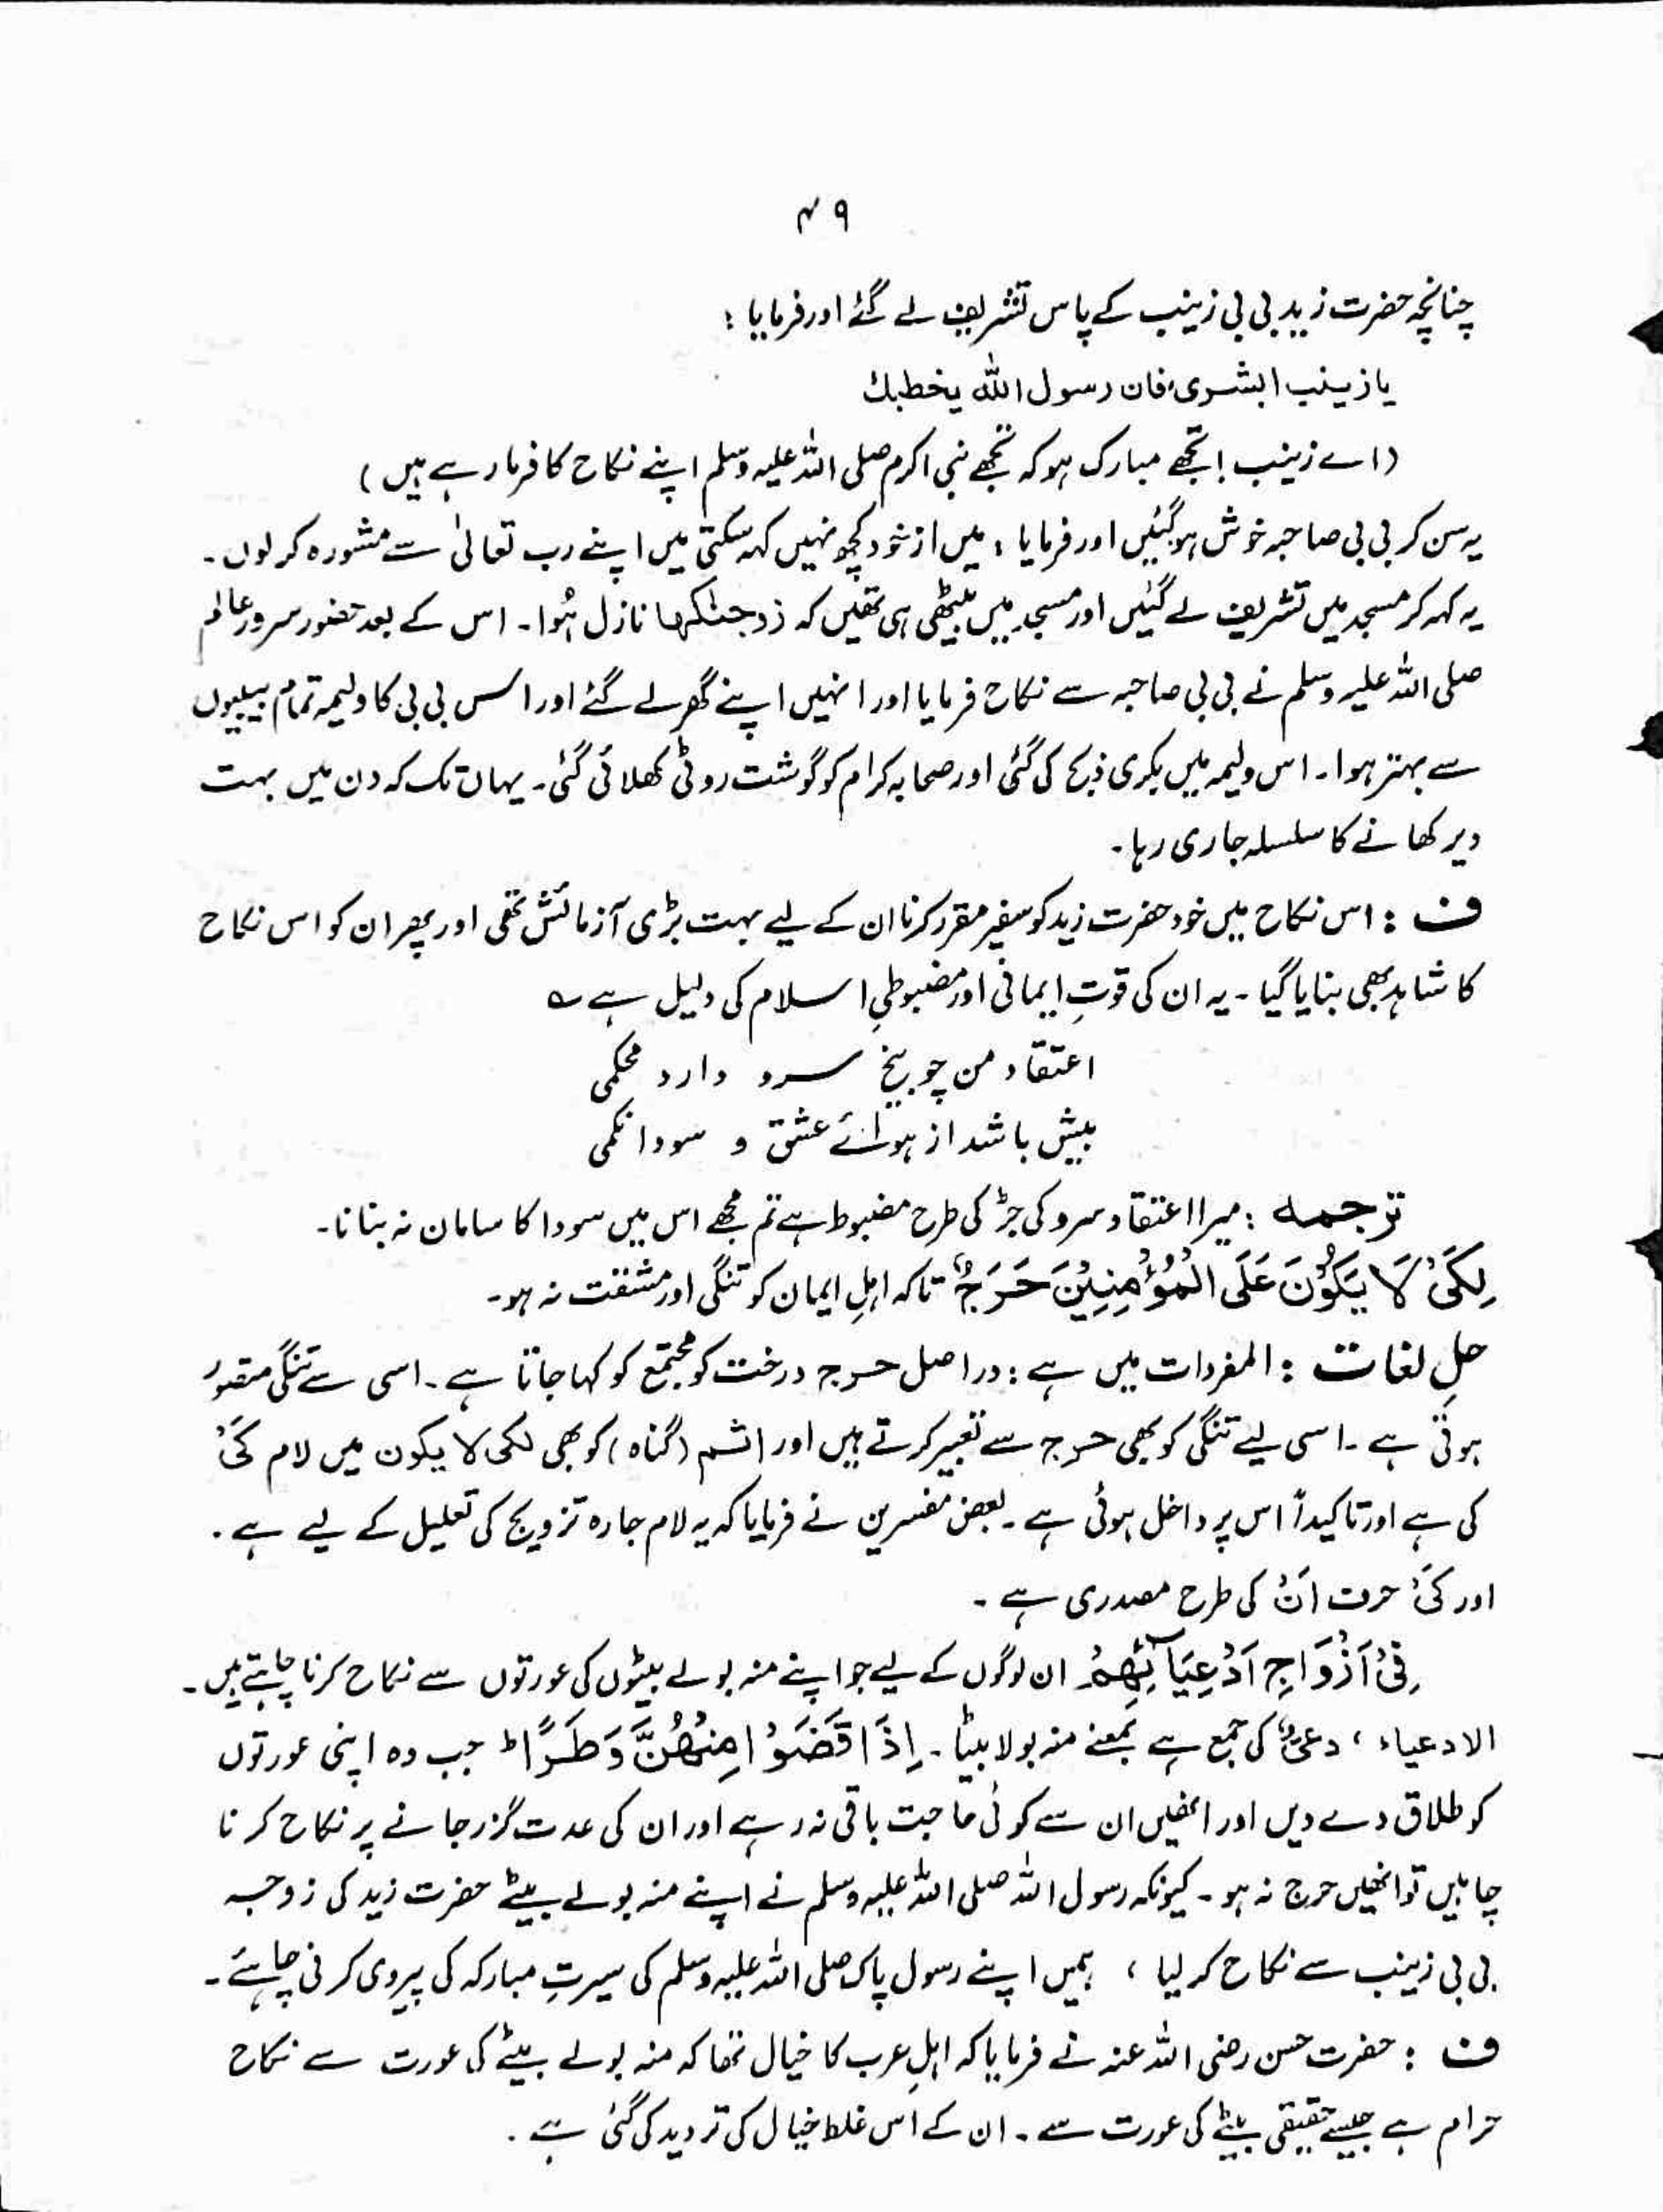 ۴۹
چنانچہ حضرت زید بی بی زینب کے پاس تشریف لے گئے اور فرمایا :
یا زینب ابشری فان رسول اللہ یخطبك
(اے زینب ! تجھے مبارک ہو کہ تجھے نبی اکرم صلی اللہ علیہ وسلم اپنے نکاح کا فرما رہے ہیں )
یہ سن کر بی بی صاحبہ خوش ہو گئیں اور فرمایا : میں از خود کچھ نہیں کہہ سکتی میں اپنے رب تعالیٰ سے مشورہ کر لوں ۔
یہ کہہ کر مسجد میں تشریف لے گئیں اور مسجد میں بیٹھی ہی تھیں کہ زوجنٰکہا نازل ہُوا ۔ اس کے بعد حضور سرورِ عالم
صلی اللہ علیہ وسلم نے بی بی صاحبہ سے نکاح فرمایا اور انہیں اپنے گھر لے گئے اور اس بی بی کا ولیمہ تمام بیبیوں
سے بہتر ہوا ۔ اس ولیمہ میں بکری ذبح کی گئی اور صحابہ کرام کو گوشت روٹی کھلائی گئی ۔ یہاں تک کہ دن میں بہت
دیر کھانے کا سلسلہ جاری رہا ۔
ف : اس نکاح میں خود حضرت زید کو سفیر مقرر کرنا ان کے لیے بہت بڑی آزمائش تھی اور پھر ان کو اس نکاح
کا شاہد بھی بنایا گیا ۔ یہ ان کی قوتِ ایمانی اور مضبوطیِ اسلام کی دلیل ہے ؎
اعتقاد من چو بیخ سرو دارد محکمی
بیش باشد از ہوائے عشق و سودا نکمی
ترجمہ : میرا اعتقاد سرو کی جڑ کی طرح مضبوط ہے تم مجھے اس میں سودا کا سامان نہ بنانا ۔
لِكَیْ لَا یَكُوْنَ عَلَی الْمُؤْمِنِیْنَ حَرَجٌ تاکہ اہلِ ایمان کو تنگی اور مشقت نہ ہو ۔
حلِ لغات : المفردات میں ہے : دراصل حرج درخت کو مجتمع کو کہا جاتا ہے ۔ اسی سے تنگی متصور
ہوتی ہے ۔ اسی لیے تنگی کو بھی حرج سے تعبیر کرتے ہیں اور اثم (گناہ) کو بھی لکی لا یکون میں لام کَیْ
کی ہے اور تاکیداً اس پر داخل ہوئی ہے ۔ بعض مفسرین نے فرمایا کہ یہ لام جارہ تزویج کی تعلیل کے لیے ہے ۔
اور کَیْ حرف اَنْ کی طرح مصدری ہے ۔
فِیْۤ اَزْوَاجِ اَدْعِیَآئِهِمْ ان لوگوں کے لیے جو اپنے منہ بولے بیٹوں کی عورتوں سے نکاح کرنا چاہتے ہیں ۔
الادعیاء ، دعیٌّ کی جمع ہے بمعنے منہ بولا بیٹا ۔ اِذَا قَضَوْا مِنْهُنَّ وَطَرًاؕ جب وہ اپنی عورتوں
کو طلاق دے دیں اور انھیں ان سے کوئی حاجت باقی نہ رہے اور ان کی عدت گزر جانے پر نکاح کرنا
چاہیں تو انھیں حرج نہ ہو ۔ کیونکہ رسول اللہ صلی اللہ علیہ وسلم نے اپنے منہ بولے بیٹے حضرت زید کی زوجہ
بی بی زینب سے نکاح کر لیا ، ہمیں اپنے رسول پاک صلی اللہ علیہ وسلم کی سیرتِ مبارکہ کی پیروی کرنی چاہئے ۔
ف : حضرت حسن رضی اللہ عنہ نے فرمایا کہ اہلِ عرب کا خیال تھا کہ منہ بولے بیٹے کی عورت سے نکاح
حرام ہے جیسے حقیقی بیٹے کی عورت سے ۔ ان کے اس غلط خیال کی تردید کی گئی ہے ۔